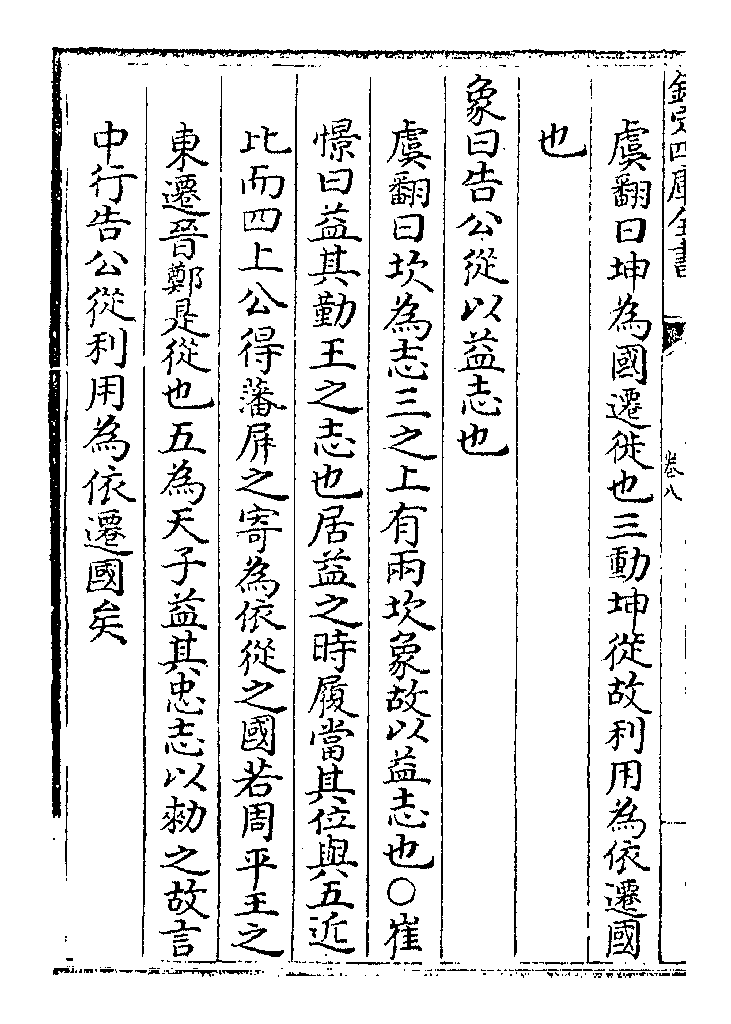 欽定四庫全書
卷八
虞翻曰坤為國遷徙也三動坤從故利用為依遷國
也
象曰告公從以益志也
虞翻曰坎為志三之上有兩坎象故以益志也○崔
憬曰益其勤王之志也居益之時履當其位與五近
比而四上公得藩屏之寄為依從之國若周平王之
東遷晉鄭是從也五為天子益其忠志以勑之故言
中行告公從利用為依遷國矣